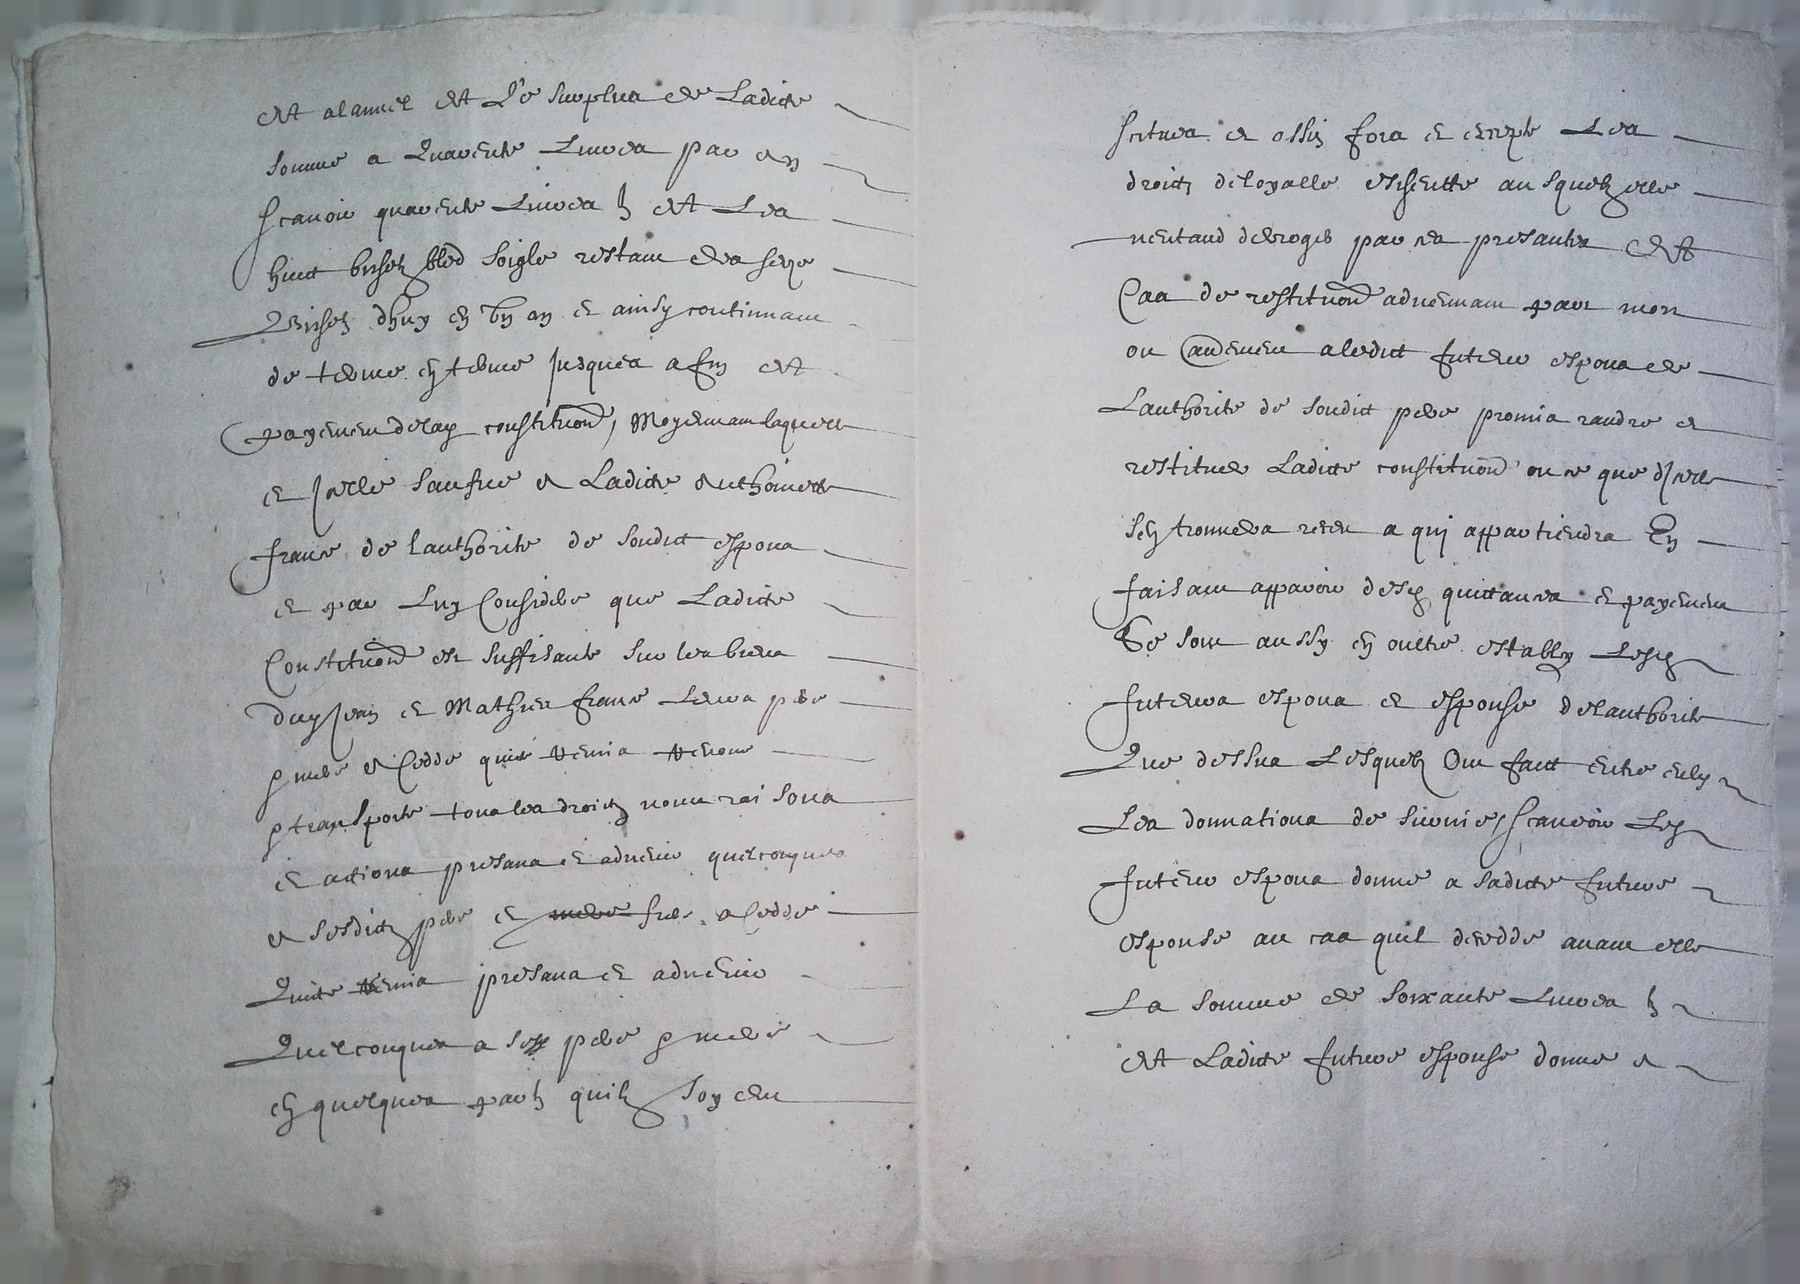 Et alannel Et Le surplus de Ladicte
somme a Quarente Livres par an
scavoir quarente Livres h Et Les
huict bisseh bled soigle restam des seze
Quisseh dhuy en un an et ainsy continuam
de terme en terme jusques a fin Et
payemen delay constituon, Moyennam laquelle
et jcelle saufue a Ladicte Anthoinette
franc de lauthorite de sondict espous
et par Luy Considere que Ladicte
Constituon est suffisante sur les biens
duy Jean et Mathieu franc Leurs pere
& mere a Cedde quité remis
& transporte tous les droicts noms raisons
et actions presans et advenir quelconques
a sesdicts pere et mere frere a Cedde
Quitte remis presans et advenir
Quelconques a sesd pere & mere
en quelques parts quilz soyem
scitues et assis fors et excepte Les
droicts deloyalle escheutte ausquelz elle
nentand desroger par ces presantes Et
Cas de restituon advenam par mort
ou autremem aledict futeur espous de
Lauthorite de sondict pere promis randre et
restituer Ladicte constituon ou ce que djcelle
sen trouvera receu a qui appartiendra En
faisam apparoir desd quittances et payemem
Se som aussy en oultre establys Lesd
futeurs espous et espouse delauthorite
Que dessus Lesquelz Om faict entre eulx
Les donnations de survie, scavoir Led
futeur espous donne a sadicte future
espouse au cas quil decedde avam elle
La somme de soixante Livres h
Et Ladicte future espouse donne a